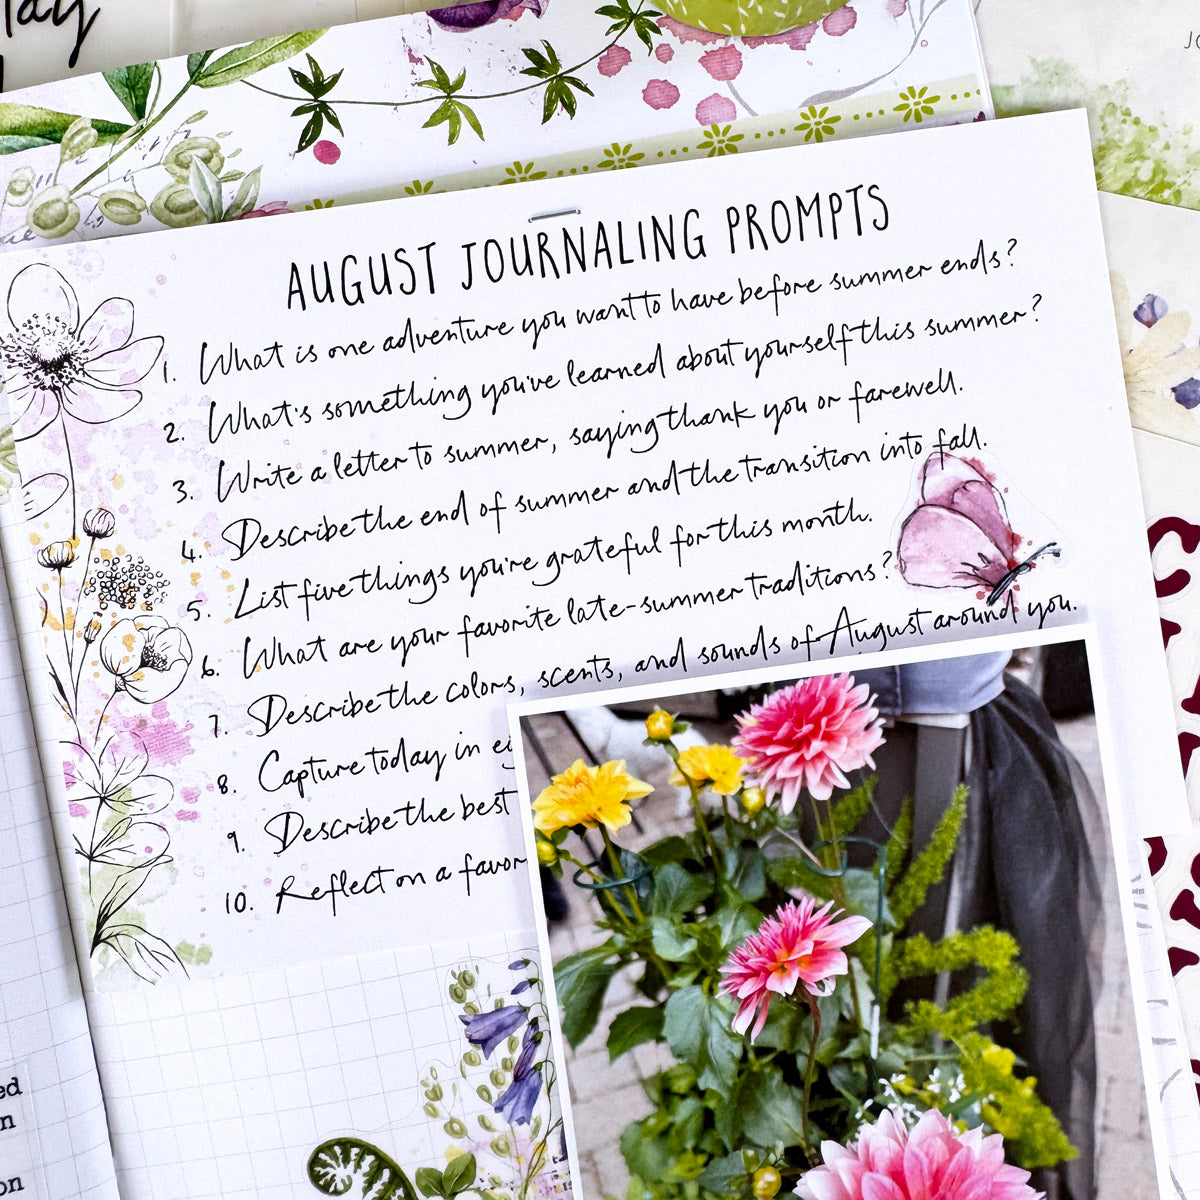 AUGUST JOURNALING PROMPTS
1. What is one adventure you want to have before summer ends?
2. What's something you've learned about yourself this summer?
3. Write a letter to summer, saying thank you or farewell.
4. Describe the end of summer and the transition into fall.
5. List five things you're grateful for this month.
6. What are your favorite late-summer traditions?
7. Describe the colors, scents, and sounds of August around you.
8. Capture today in
9. Describe the best
10. Reflect on a